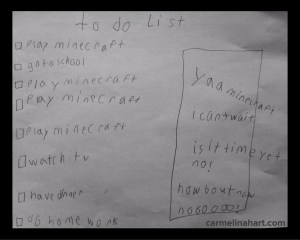 to do List
Play minecraft
go to school
Play minecraft
Play minecraft
Play minecraft
watch tv
have dinner
do home work
yaa minecraft
I cant wait
is It time yet
no!
how bout now
noooooo!
carmelinahart.com